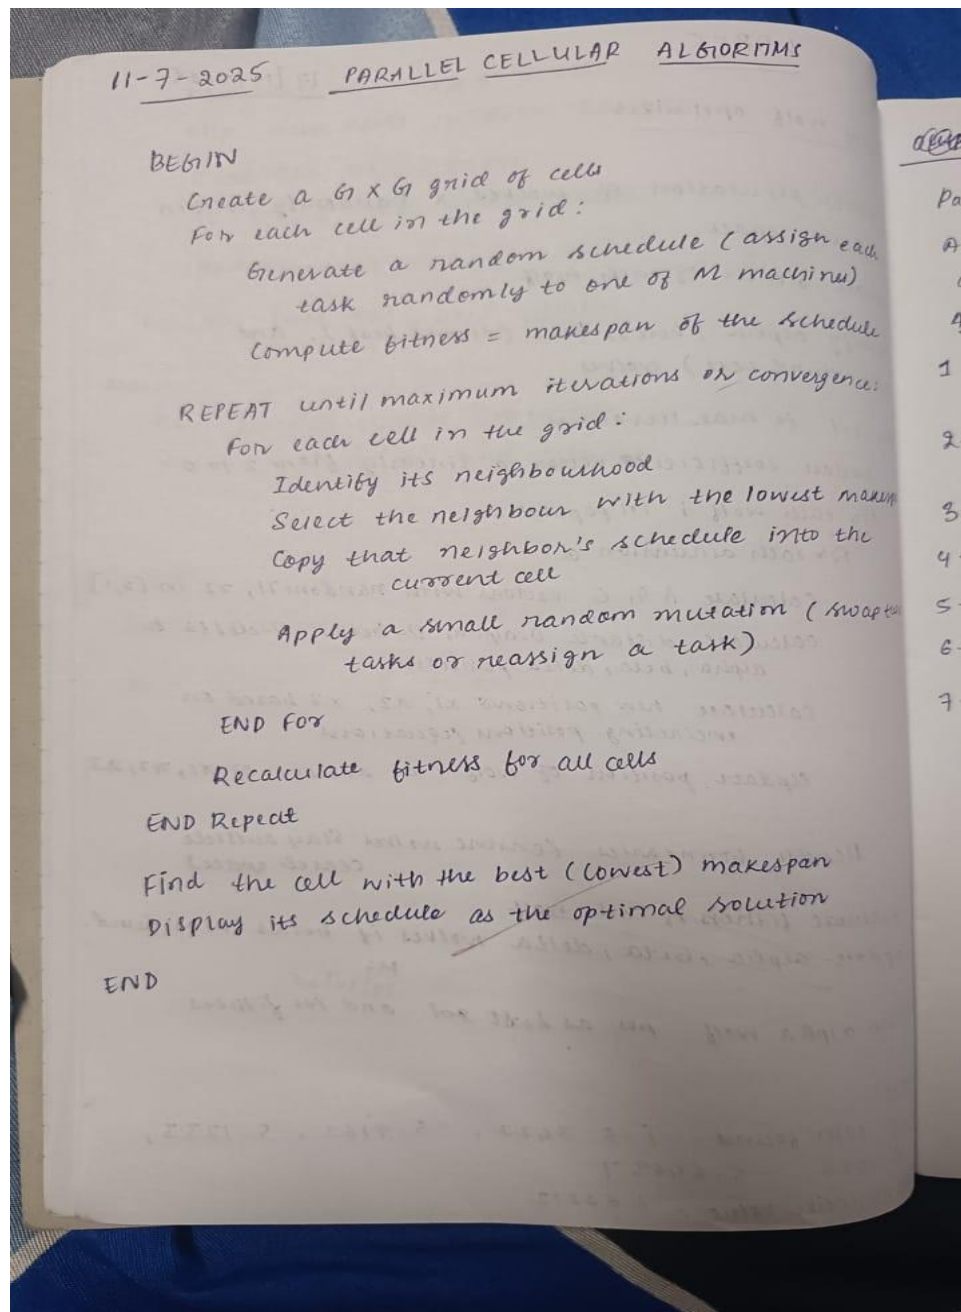 11-7-2025 PARALLEL CELLULAR ALGIORITMS
BEGIN
Create a G X G grid of cells
For each cell in the grid:
Generate a random schedule (assign each
task randomly to one of M machines)
Compute fitness = makespan of the schedule
REPEAT until maximum iterations or convergence:
For each cell in the grid:
Identify its neighbourhood
Select the neighbour with the lowest
Copy that neighbor's schedule into the
current cell
Apply a small random mutation (swap
tasks or reassign a task)
END FOR
Recalculate fitness for all cells
END Repeat
Find the cell with the best (lowest) makespan
Display its schedule as the optimal solution
END
Pa
A
1
2
3
4
5
6
7